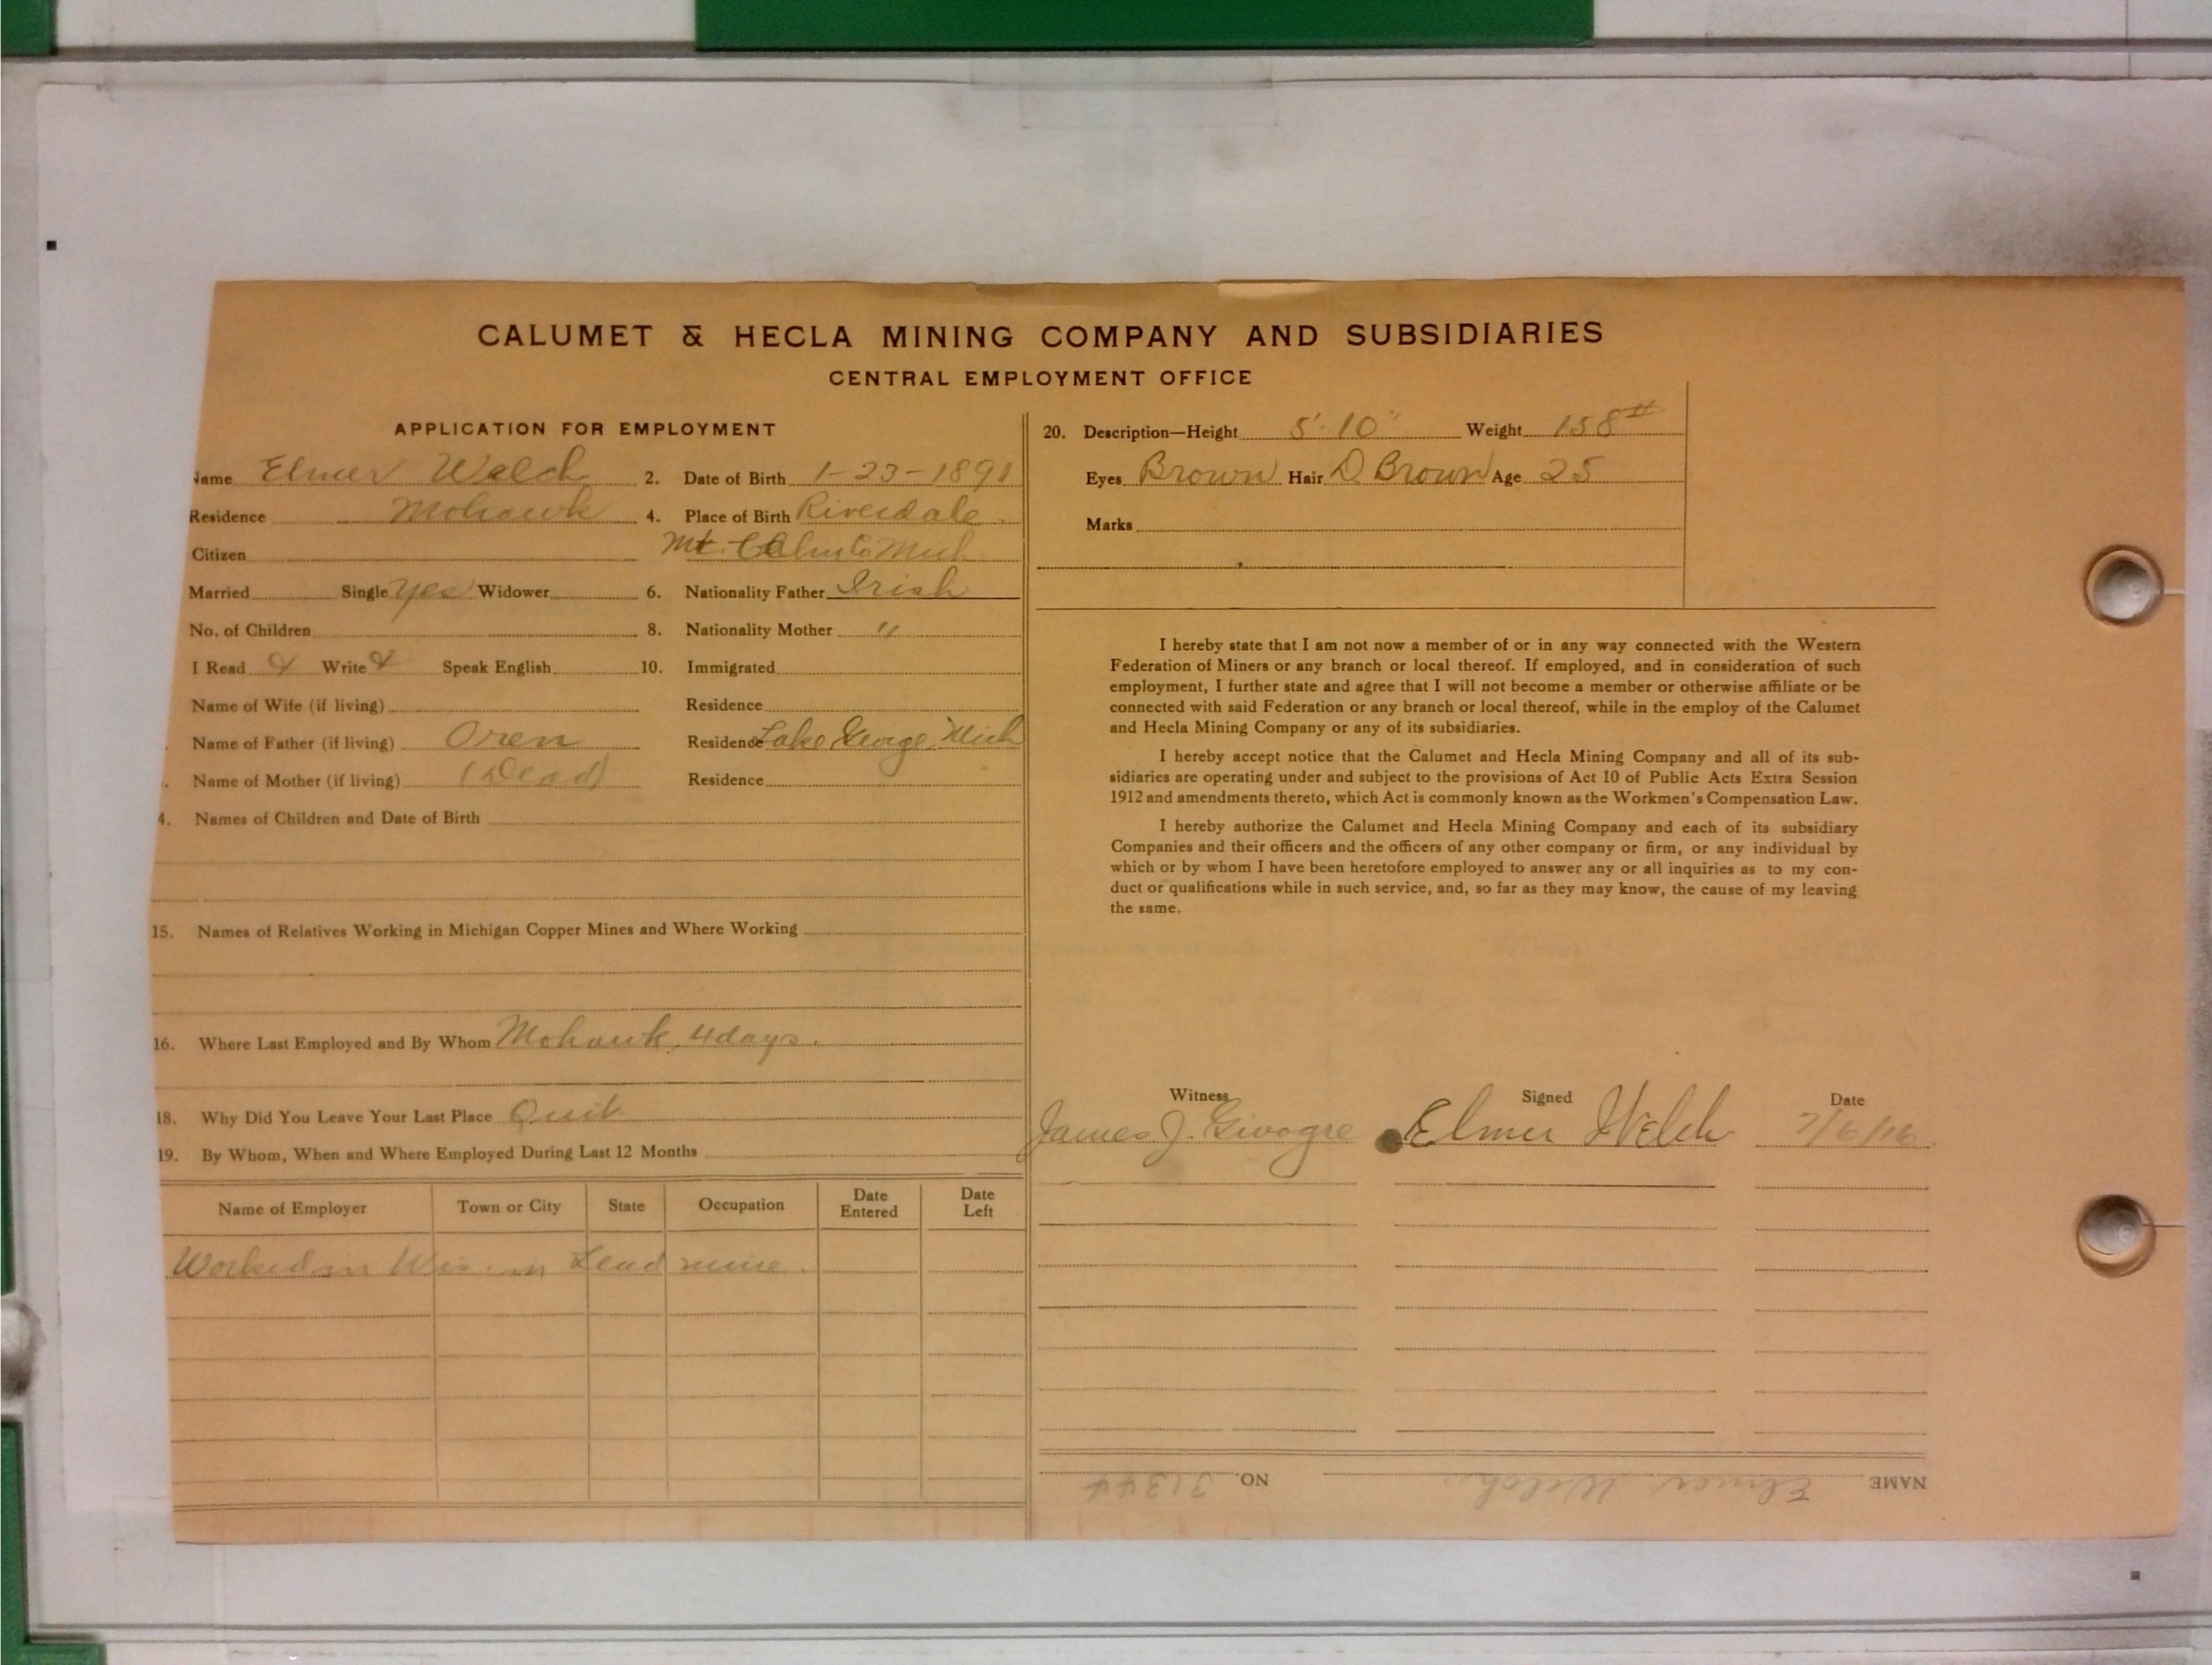 CALUMET & HECLA MINING COMPANY AND SUBSIDIARIES
CENTRAL EMPLOYMENT OFFICE
APPLICATION FOR EMPLOYMENT
Name Elmer Welch 2. Date of Birth 1-23-1891
Residence Mohawk 4. Place of Birth Riverdale.
Citizen Co Mich
Married Single yes Widower 6. Nationality Father Irish
No. of Children 8. Nationality Mother "
I Read Write Speak English 10. Immigrated
Name of Wife (if living) Residence
Name of Father (if living) Oren Residence Lake George, Mich
Name of Mother (if living) (Dead) Residence
4. Names of Children and Date of Birth
15. Names of Relatives Working in Michigan Copper Mines and Where Working
16. Where Last Employed and By Whom Mohawk, 4 days.
18. Why Did You Leave Your Last Place Quit
19. By Whom, When and Where Employed During Last 12 Months
Name of Employer Town or City State Occupation Date Entered Date Left
Worked in Wis. in Lead mine.
20. Description—Height 5' 10" Weight 158#
Eyes Brown Hair D. Brown Age 25
Marks
I hereby state that I am not now a member of or in any way connected with the Western
Federation of Miners or any branch or local thereof. If employed, and in consideration of such
employment, I further state and agree that I will not become a member or otherwise affiliate or be
connected with said Federation or any branch or local thereof, while in the employ of the Calumet
and Hecla Mining Company or any of its subsidiaries.
I hereby accept notice that the Calumet and Hecla Mining Company and all of its sub-
sidiaries are operating under and subject to the provisions of Act 10 of Public Acts Extra Session
1912 and amendments thereto, which Act is commonly known as the Workmen's Compensation Law.
I hereby authorize the Calumet and Hecla Mining Company and each of its subsidiary
Companies and their officers and the officers of any other company or firm, or any individual by
which or by whom I have been heretofore employed to answer any or all inquiries as to my con-
duct or qualifications while in such service, and, so far as they may know, the cause of my leaving
the same.
Witness Signed Date
James J. Givogre Elmer Welch 7/6/16
NAME Elmer Welch NO. 31344